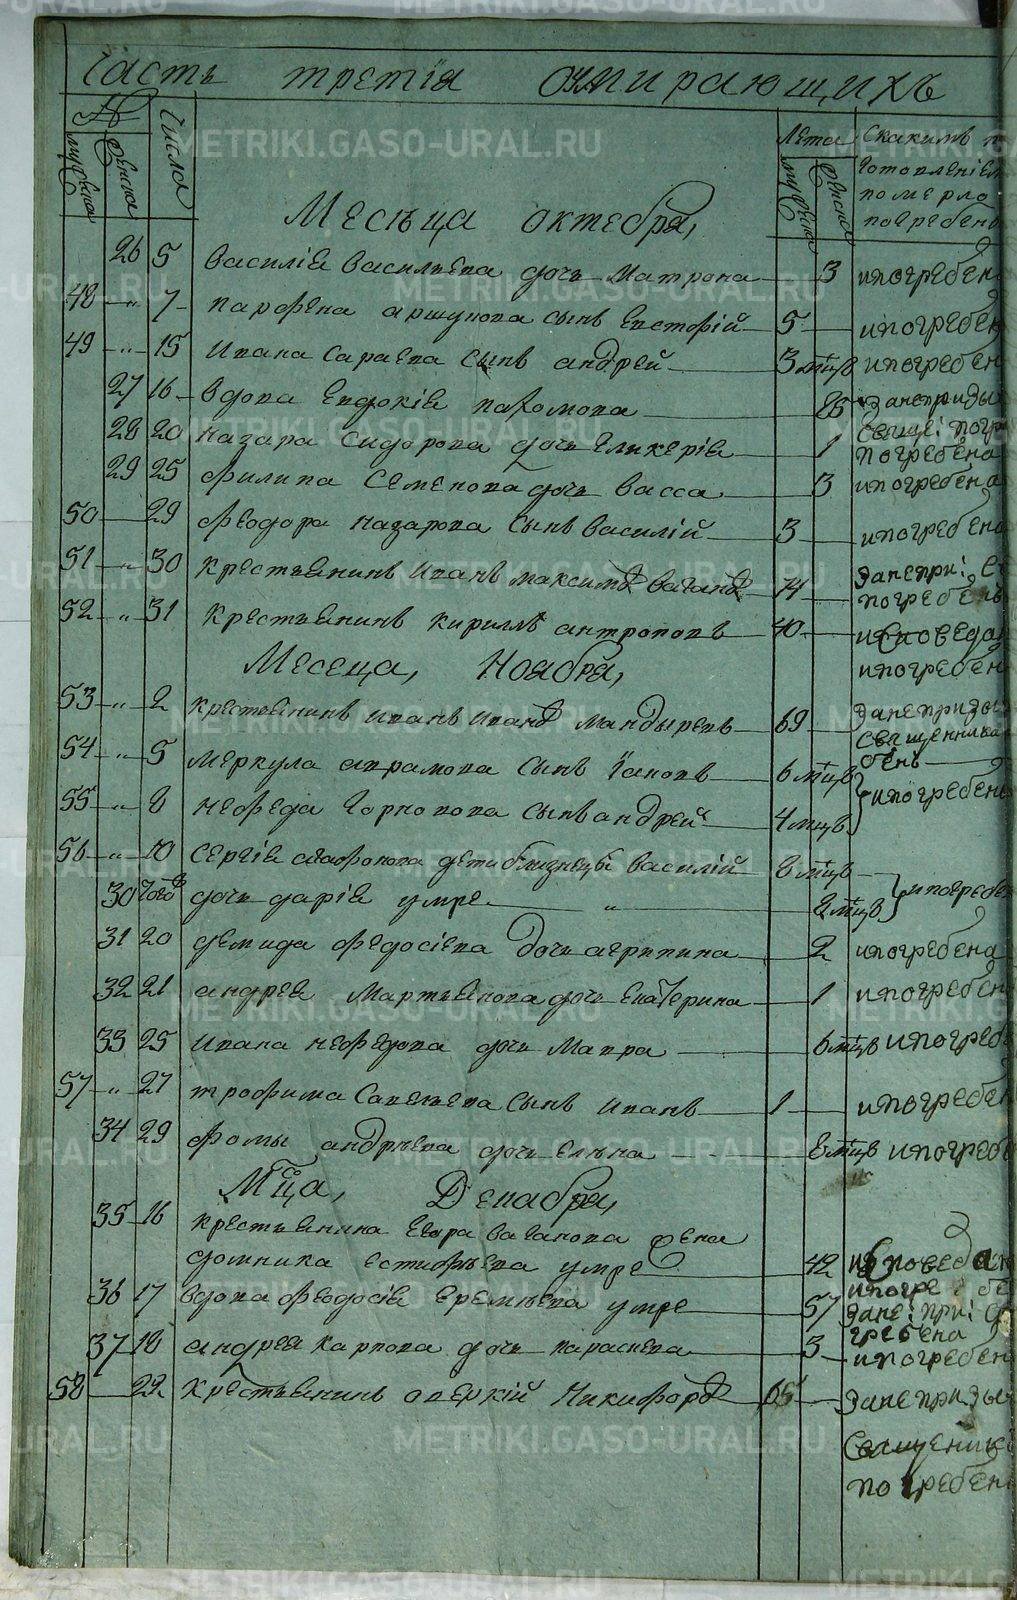 Часть третія оумирающихъ
№ Числа Лета Скакимъ
мужеска женска мужеска женска
готовленіем
померло
погребено
Месѣца октебря,
26 5 Василія Васильева дочь Матрона 3 ипогребен
48 " 7 Парфена аршунова сынъ Евстофій 5 ипогребен
49 " 15 Ивана Сараева сынъ андрей 3 мцѣв ипогребен
27 16 Вдова Евдокія пахомова 85 Занепризы
свяще: погр
28 20 Назара Сидорова дочь Гликерія 1 погребена
29 25 Филипа Семенова дочь Васса 3 ипогребена
50 29 Феодора Назарова сынъ Василій 3 ипогребено
51 " 30 Крестьянинъ Иванъ Максимов Ваганов 74 Занепри: с
погребенъ
52 " 31 Крестьянинъ Кириллъ антроповъ 40 исповеда
ипогребен
Месеца, Ноября,
53 " 2 Крестьянинъ Иванъ Иванов Мандыревъ 69 Занепризы
священника
бенъ
54 " 5 Меркула аврамова сынъ Іаковъ 6 мцѣв
ипогребен
55 " 8 Нефеда Горнопова сынъ андрей 4 мцѣв
56 " 10 Сергія агафонова дети близнецы Василій 8 мцѣв
30 того дочь дарія умре " 8 мцѣв ипогребе
31 20 демида Федосіева дочь агрипина 2 ипогребена
32 21 андрея Мартьянова дочь Екатерина 1 ипогребен
33 25 Ивана Нефедова дочь Мавра 6 мцѣв ипогреб
57 " 27 трофима Савельева сынъ Иванъ 1 ипогребе
34 29 Фомы андрѣева дочь елѣна 8 мцѣв ипогреб
Мца, Декабря,
35 16 Крестьянина Егора Ваганова жена
домника Естифѣева умре 42 исповедан
ипогре бе
36 17 Вдова Феодосія Еремѣева умре 57 Зане: при: с
гребена
37 18 андрея Карпова дочь параскева 3 ипогребен
58 22 Крестьянинъ аверкій Никифоров 65 Занепризы
Священник
погребен
METRIKI.GASO-URAL.RU